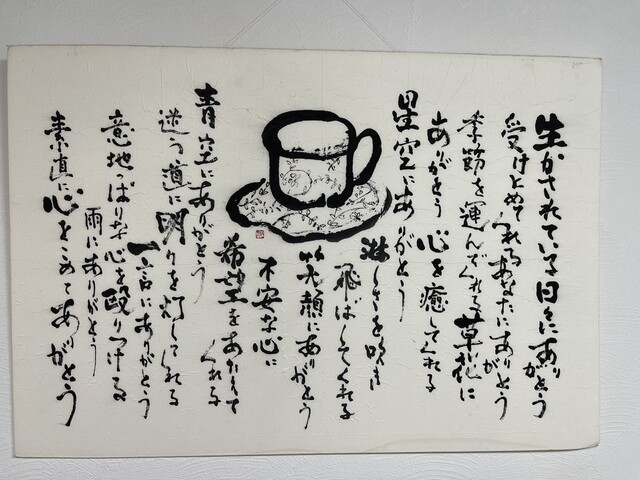 生かされている日々にありがとう
受けとめてくれるあなたにありがとう
季節を運んでくれる草花に
ありがとう 心を癒してくれる
星空にありがとう
淋しさを吹き
飛ばしてくれる
笑顔にありがとう
不安な心に
希望をあたえて
くれる
青空にありがとう
迷う道に明りを灯してくれる
一言にありがとう
意地っぱりな心を殴りつける
雨にありがとう
素直に心をこめてありがとう